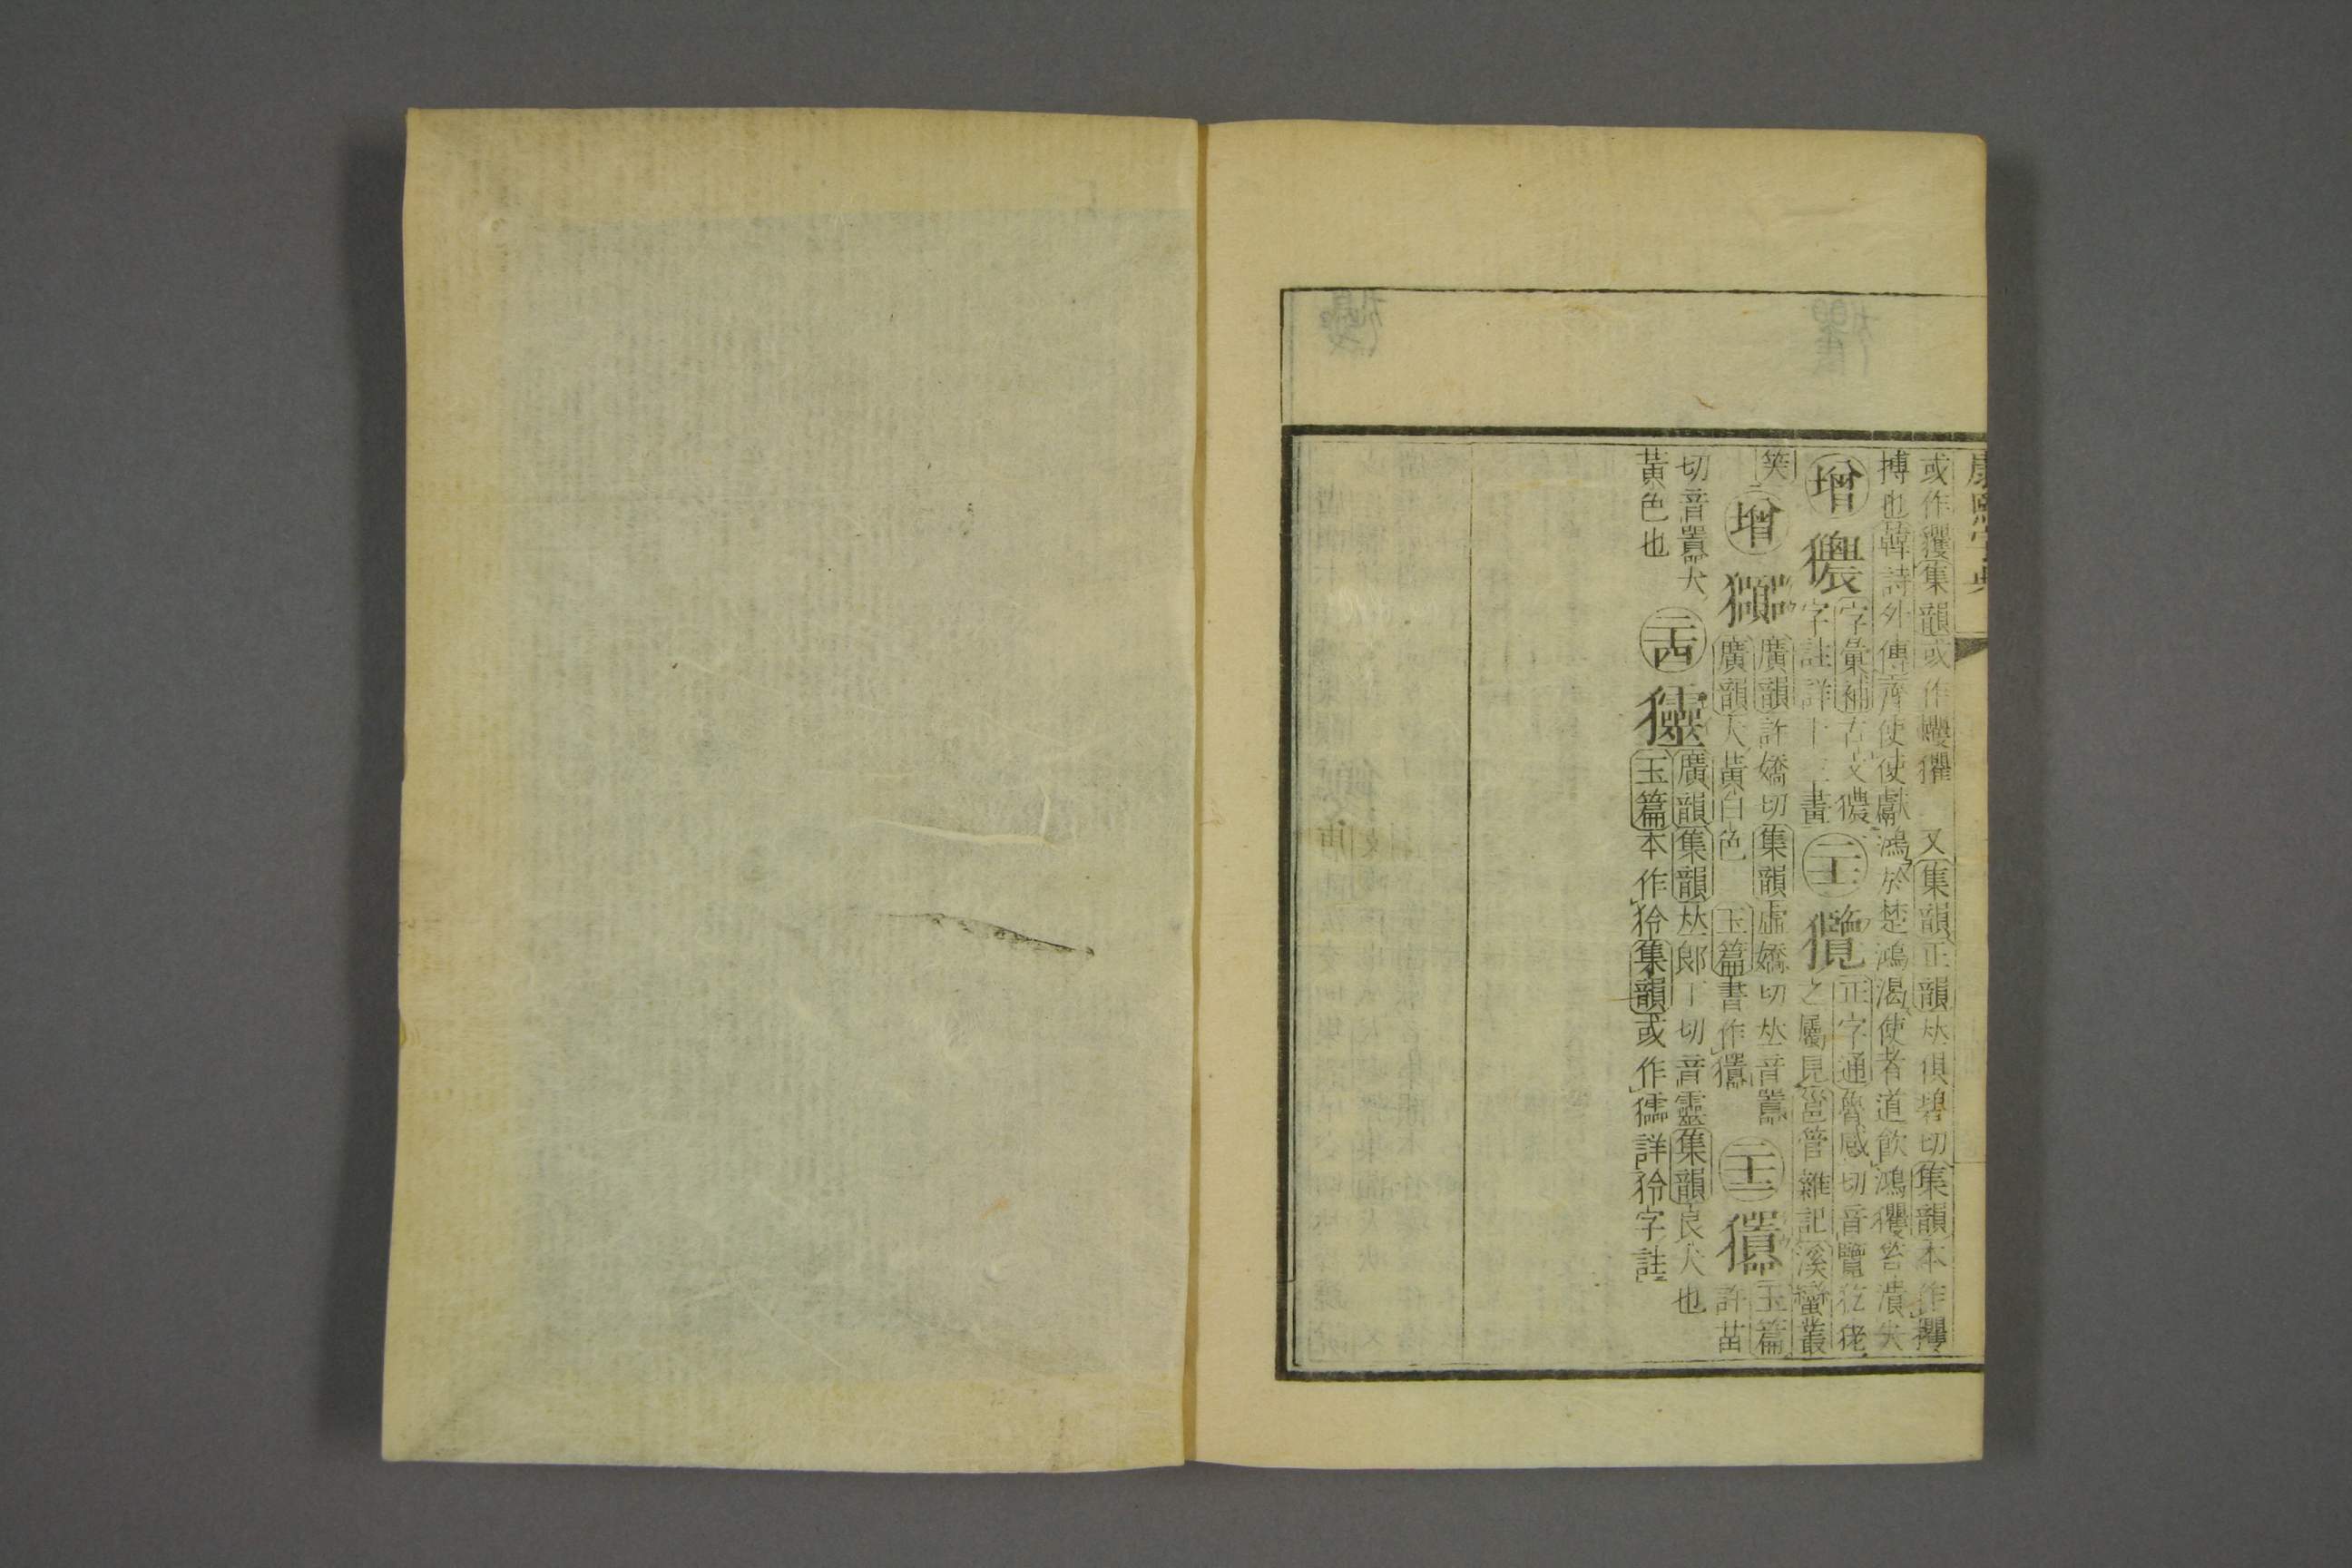 康熙字典
或作玃集韻或作蠼㺢 又集韻正韻𠀤俱碧切集韻本作攫
搏也韓詩外傳齊使使獻鴻於楚鴻渴使者道飮鴻玃笞潰失
增
字彙補古文獿
字註詳十三畫
二十一
正字通魯感切音覽犵狫
之屬見邕管雜記溪蠻叢
笑
增
廣韻許嬌切集韻虛嬌切𠀤音囂
廣韻犬黃白色 玉篇書作獢
二十二
玉篇
許苗
切音囂犬
黃色也
二十四
㺦
廣韻集韻𠀤郞丁切音靈集韻良犬也
玉篇本作狑集韻或作㺦詳狑字註